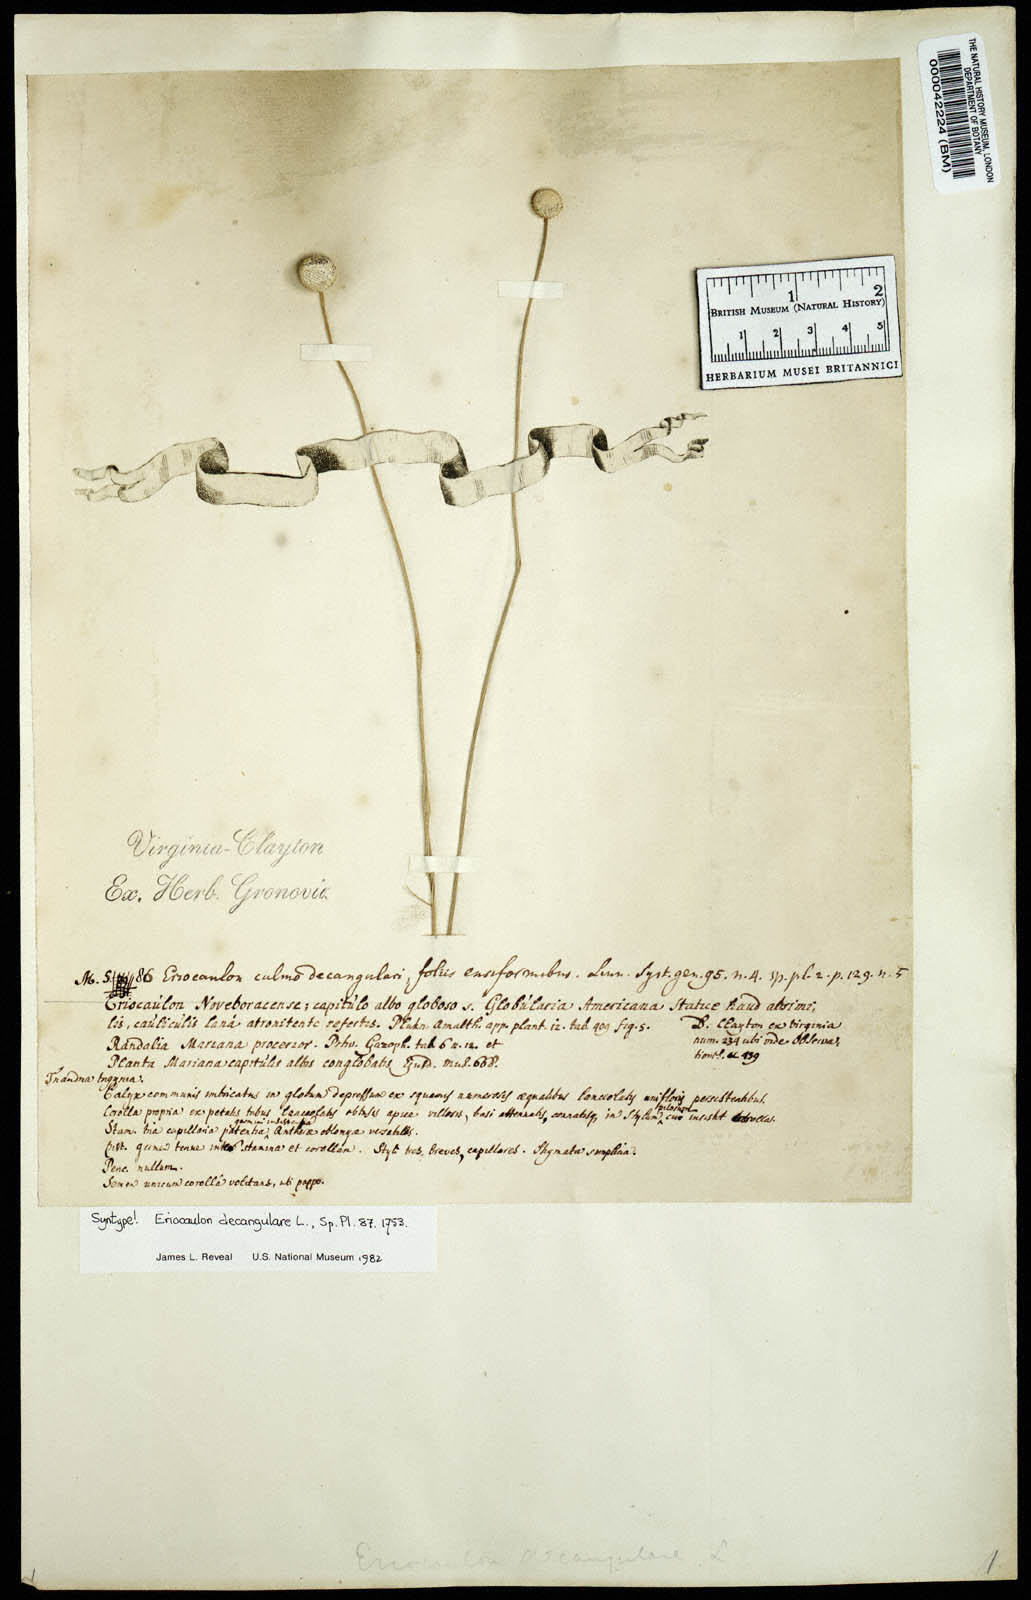 THE NATURAL HISTORY MUSEUM, LONDON
DEPARTMENT OF BOTANY
000042224 (BM)
1 2
BRITISH MUSEUM (NATURAL HISTORY)
1 2 3 4 5
HERBARIUM MUSEI BRITANNICI
Virginia-Clayton
Ex. Herb. Gronovii.
86 Eriocaulon culmo decangulari, foliis ensiformibus. Linn. Syst. gen. 95. n. 4. sp. pl. 2. p. 129. n. 5
Eriocaulon Noveboracense; capitulo albo globoso s. Globularia Americana Statice haud absimi,
lis, cauliculis lanâ atronitente refertis. Plukn. amalth. app. plant. ic. tab. 409 fig. 5.
D. Clayton ex Virginia
Randalia Mariana procerior. Petiv. Gazoph. tab. 6 n. 12. et
num. 234 ubi vide Observa,
Planta Mariana capitulis albis conglobatis Ejusd. mus. 668.
tion. 439
Triandria trigynia.
Calyx communis imbricatus in globum depressum ex squamis numerosis æqualibus lanceolatis unifloris persistentibus.
Corolla propria ex petalis tribus lanceolatis obtusis apice villosis, basi attenuatis, connatisq, in Stylum, cui insistit
Stam. tria capillaria patentia, Antheræ oblongæ versatiles.
Pist. germen tenue inter stamina et corollam. Styli tres, breves, capillares. Stigmata simplicia.
Peric. nullum.
Semen unicum corollâ volitans, uti pappo.
Syntype! Eriocaulon decangulare L., Sp. Pl. 87. 1753.
James L. Reveal U.S. National Museum 1982
Eriocaulon decangulare L
1